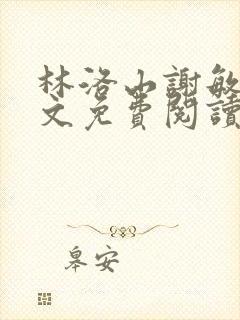 林洛山謝敏
文免費閱讀
皋安